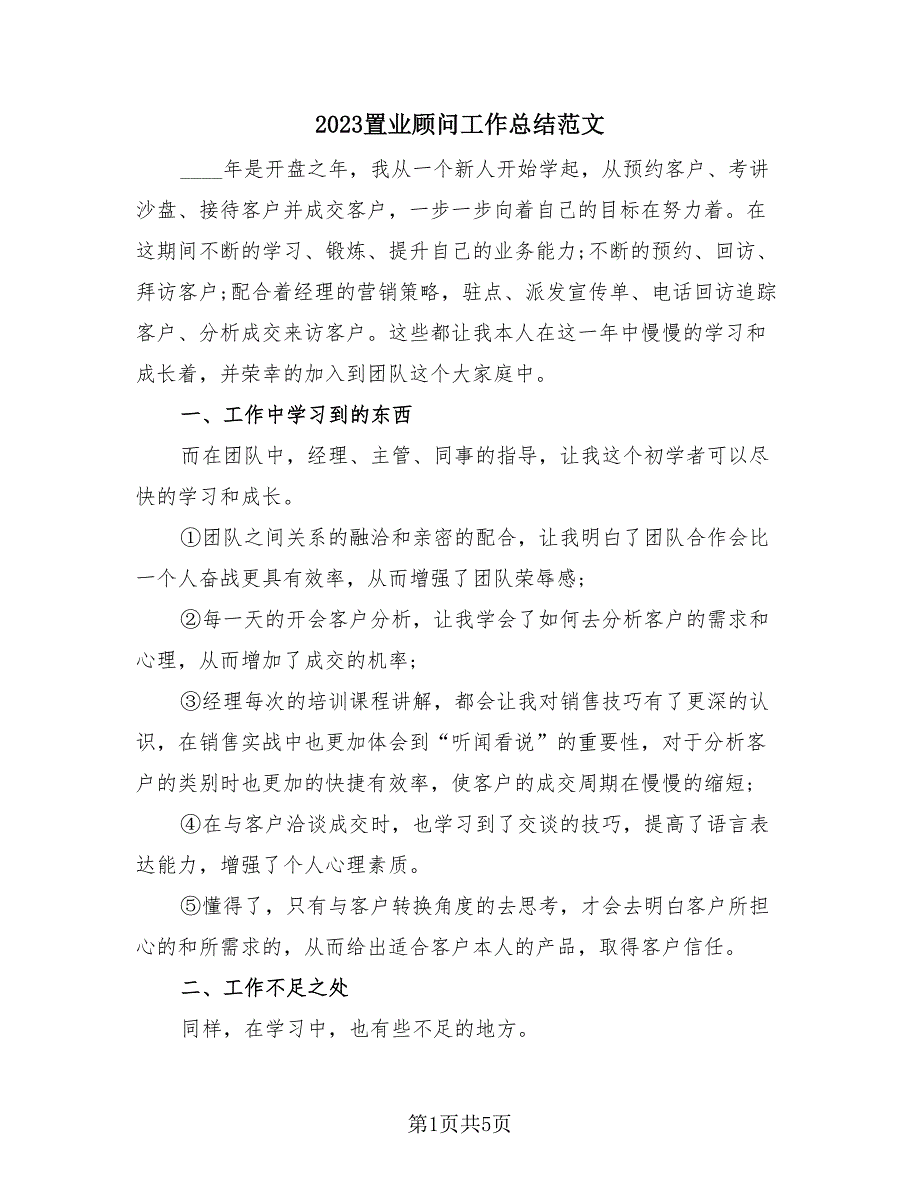 2023置业顾问工作总结范文
____年是开盘之年，我从一个新人开始学起，从预约客户、考讲
沙盘、接待客户并成交客户，一步一步向着自己的目标在努力着。在
这期间不断的学习、锻炼、提升自己的业务能力;不断的预约、回访、
拜访客户;配合着经理的营销策略，驻点、派发宣传单、电话回访追踪
客户、分析成交来访客户。这些都让我本人在这一年中慢慢的学习和
成长着，并荣幸的加入到团队这个大家庭中。
一、工作中学习到的东西
而在团队中，经理、主管、同事的指导，让我这个初学者可以尽
快的学习和成长。
①团队之间关系的融洽和亲密的配合，让我明白了团队合作会比
一个人奋战更具有效率，从而增强了团队荣辱感;
②每一天的开会客户分析，让我学会了如何去分析客户的需求和
心理，从而增加了成交的机率;
③经理每次的培训课程讲解，都会让我对销售技巧有了更深的认
识，在销售实战中也更加体会到“听闻看说”的重要性，对于分析客
户的类别时也更加的快捷有效率，使客户的成交周期在慢慢的缩短;
④在与客户洽谈成交时，也学习到了交谈的技巧，提高了语言表
达能力，增强了个人心理素质。
⑤懂得了，只有与客户转换角度的去思考，才会去明白客户所担
心的和所需求的，从而给出适合客户本人的产品，取得客户信任。
二、工作不足之处
同样，在学习中，也有些不足的地方。
第1页共5页